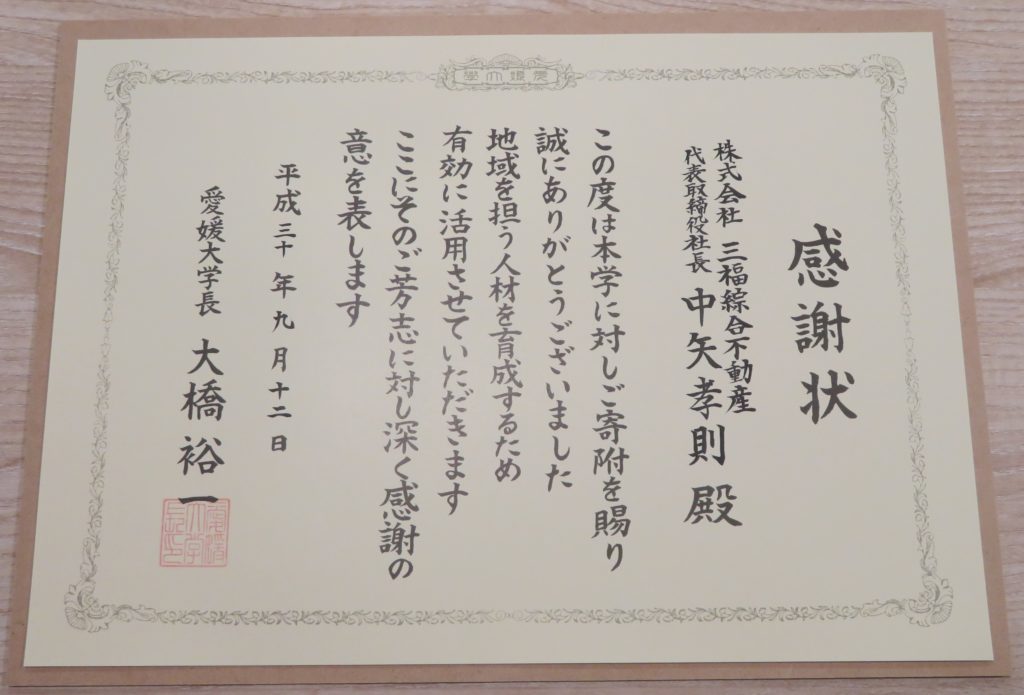 愛媛大學
感謝状
株式会社 三福綜合不動産
代表取締役社長 中矢孝則 殿
この度は本学に対しご寄附を賜り
誠にありがとうございました
地域を担う人材を育成するため
有効に活用させていただきます
ここにそのご芳志に対し深く感謝の
意を表します
平成三十年九月十二日
愛媛大学長 大橋裕一
愛媛大学長印